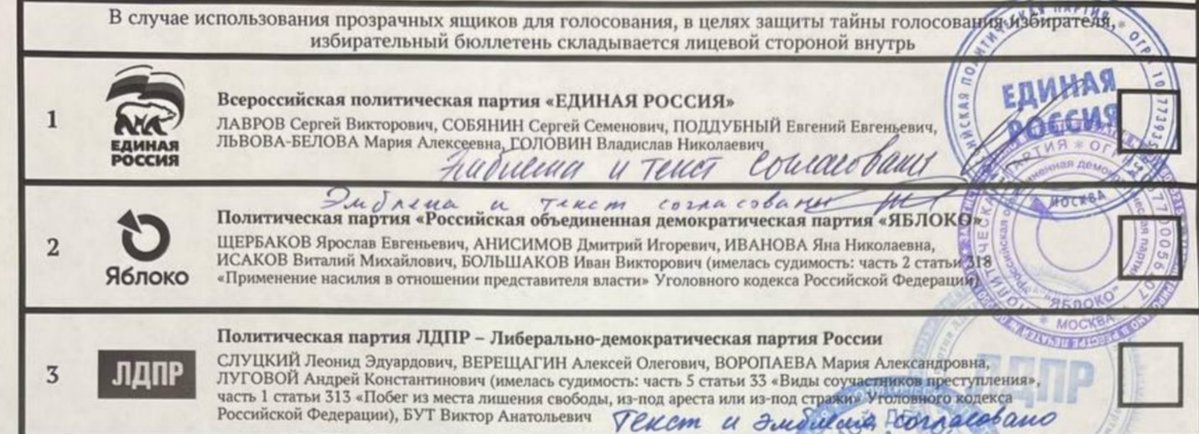 В случае использования прозрачных ящиков для голосования, в целях защиты тайны голосования избирателя,
избирательный бюллетень складывается лицевой стороной внутрь
1
ЕДИНАЯ
РОССИЯ
Всероссийская политическая партия «ЕДИНАЯ РОССИЯ»
ЛАВРОВ Сергей Викторович, СОБЯНИН Сергей Семенович, ПОДДУБНЫЙ Евгений Евгеньевич,
ЛЬВОВА-БЕЛОВА Мария Алексеевна, ГОЛОВИН Владислав Николаевич
Эмблема и текст согласованы
ЕДИНАЯ
РОССИЯ
МОСКВА
Эмблема и текст согласованы
2
Яблоко
Политическая партия «Российская объединенная демократическая партия «ЯБЛОКО»
ЩЕРБАКОВ Ярослав Евгеньевич, АНИСИМОВ Дмитрий Игоревич, ИВАНОВА Яна Николаевна,
ИСАКОВ Виталий Михайлович, БОЛЬШАКОВ Иван Викторович (имелась судимость: часть 2 статьи 318
«Применение насилия в отношении представителя власти» Уголовного кодекса Российской Федерации)
"ЯБЛОКО"
МОСКВА
3
ЛДПР
Политическая партия ЛДПР – Либерально-демократическая партия России
СЛУЦКИЙ Леонид Эдуардович, ВЕРЕЩАГИН Алексей Олегович, ВОРОПАЕВА Мария Александровна,
ЛУГОВОЙ Андрей Константинович (имелась судимость: часть 5 статьи 33 «Виды соучастников преступления»,
часть 1 статьи 313 «Побег из места лишения свободы, из-под ареста или из-под стражи» Уголовного кодекса
Российской Федерации), БУТ Виктор Анатольевич
Текст и эмблема согласовано
ЛДПР